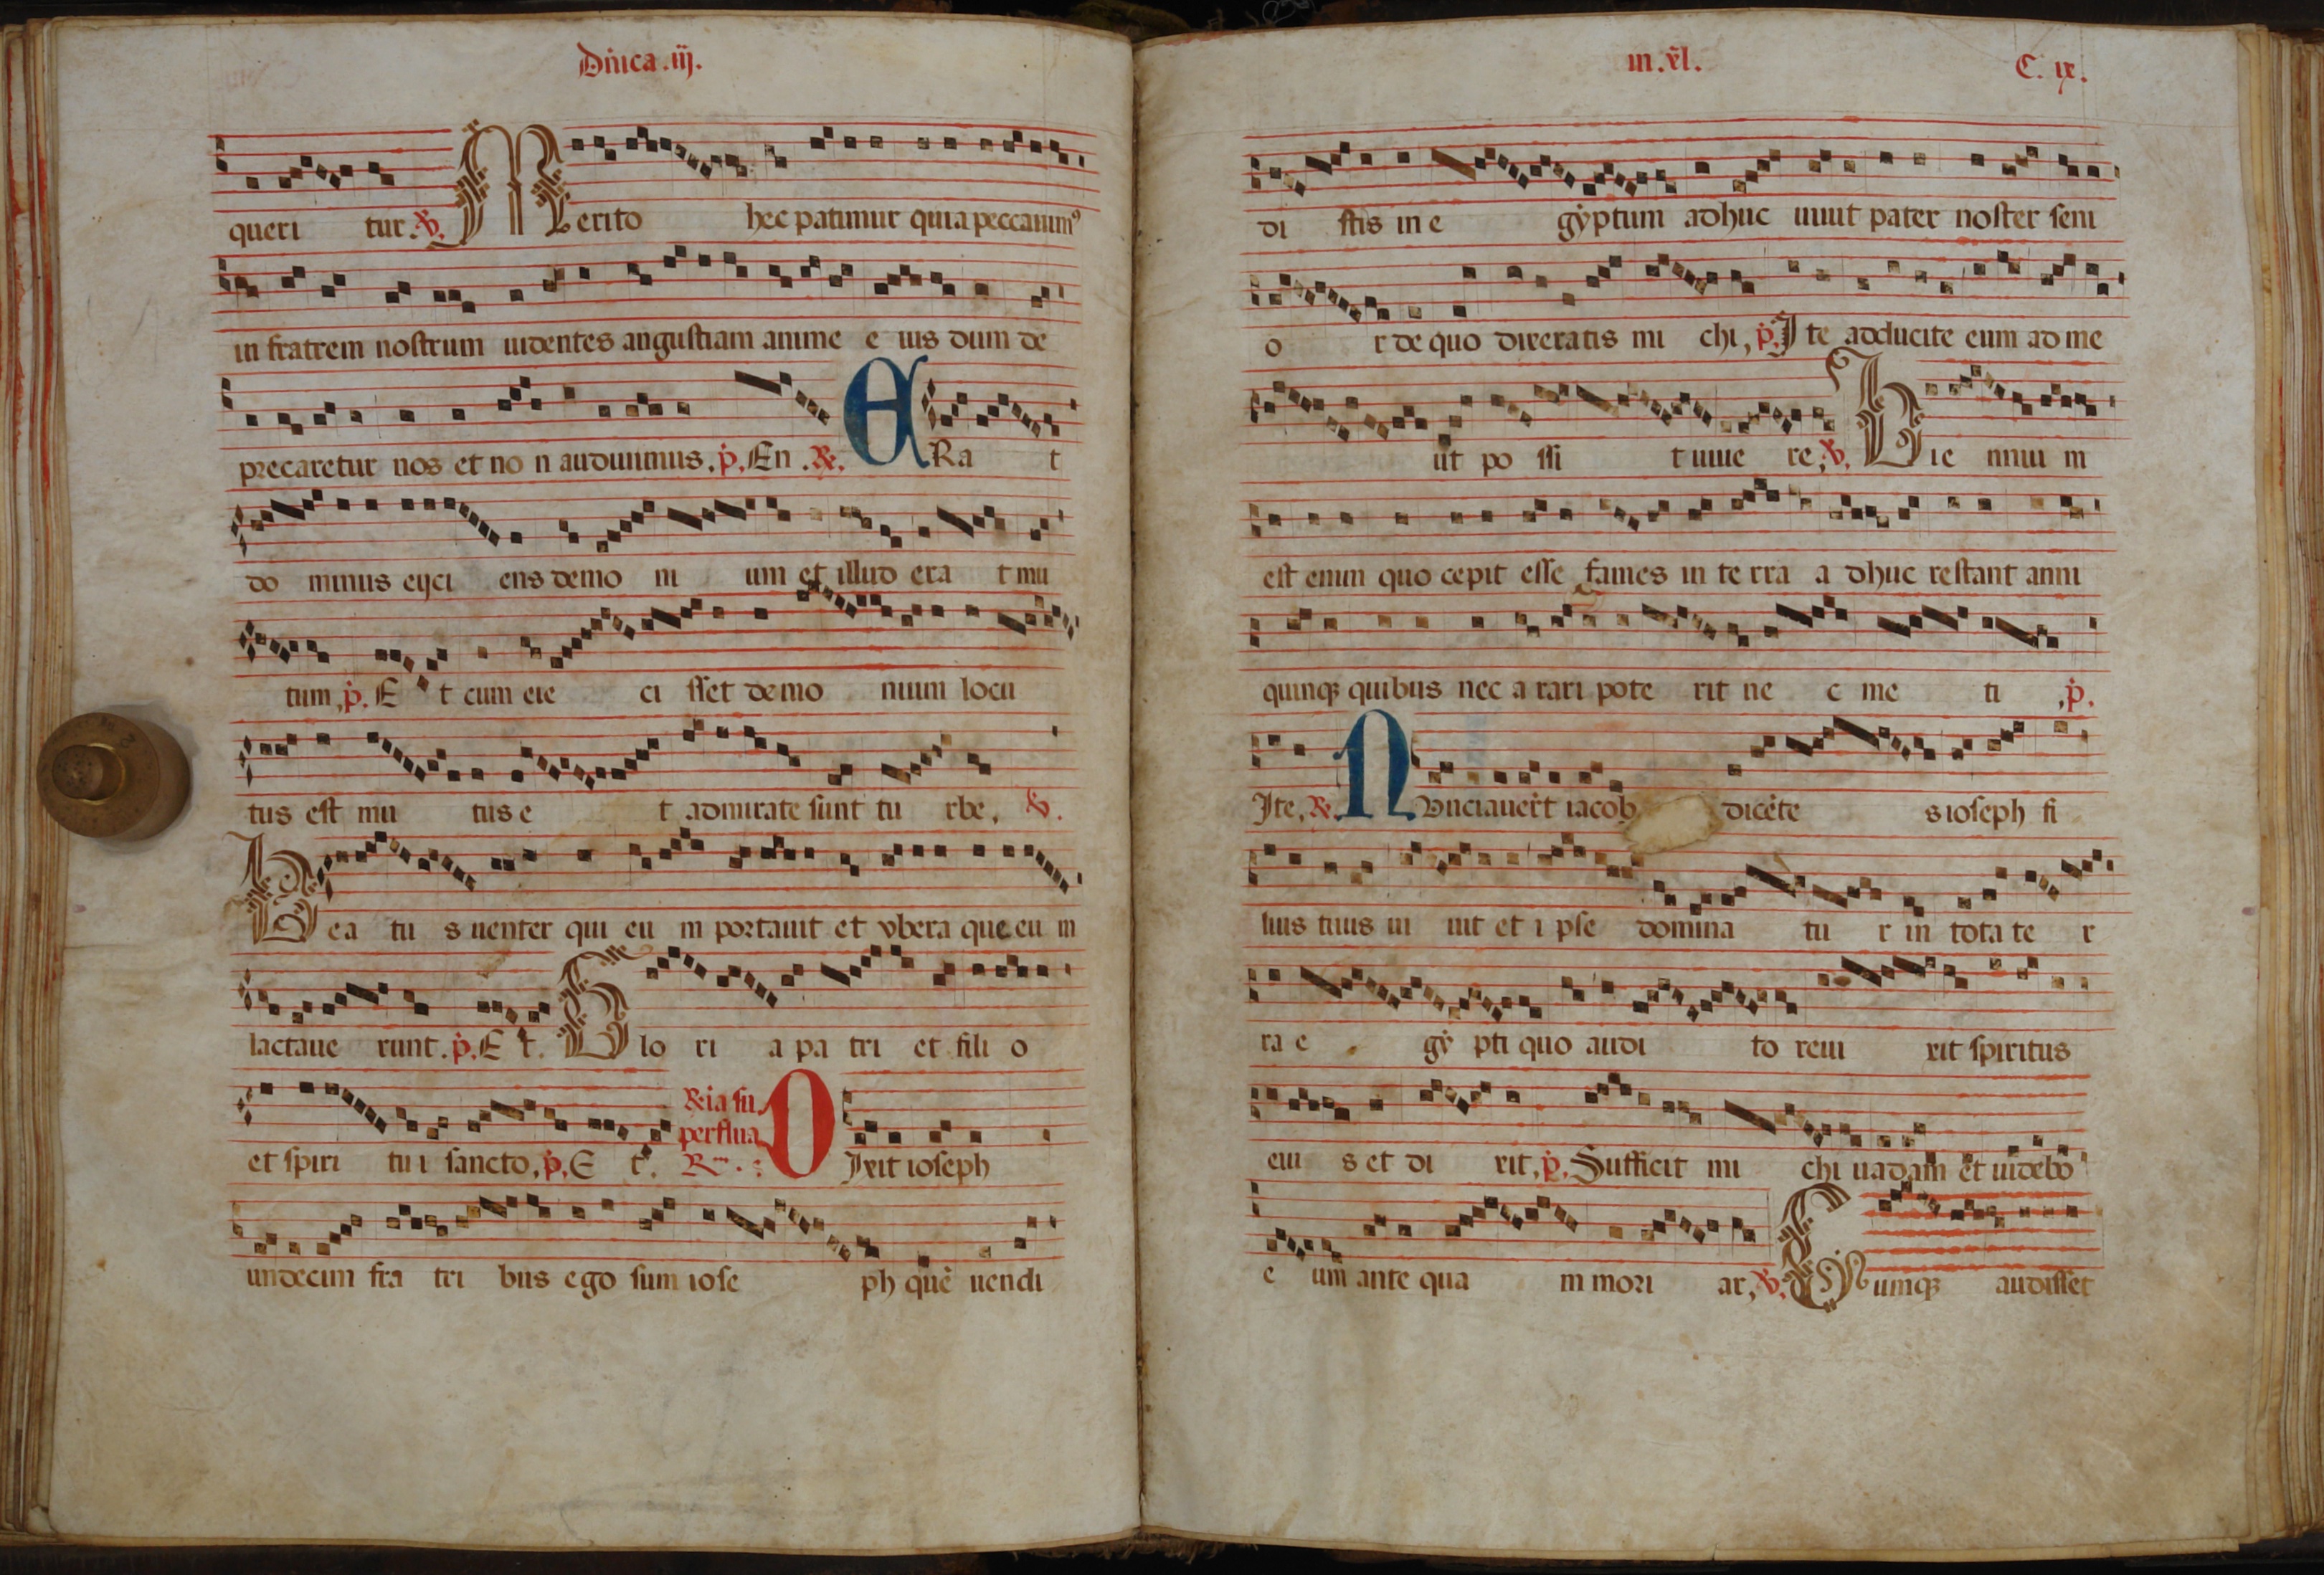 Dñica .iij.
queri tur. ℣. Merito hec patimur quia peccauimꝰ
in fratrem nostrum uidentes angustiam anime e ius dum de
precaretur nos et no n audiuimus. p̄. En .℟. ERa t
do minus eijci ens demo ni um et illud era t mu
tum, p̄. E t cum eie ci sset demo nium locu
tus est mu tus e t admirate sunt tu rbe, ℣.
Bea tu s uenter qui eu m portauit et vbera que eu m
lactaue runt. p̄. E t. Glo ri a pa tri et fili o
et spiri tu i sancto, p̄. E t. ℟ia su
perflua
DIxit ioseph
undecim fra tri bus ego sum iose ph quē uendi
in .xl. C. ix.
di stis in e gẏptum adhuc uiuit pater noster seni
o r de quo dixeratis mi chi, p̄. Ite adducite eum ad me
ut po ssi t uiue re, ℣. Bie nniu m
est enim quo cepit esse fames in te rra a dhuc restant anni
quinqꝫ quibus nec a rari pote rit ne c me ti , p̄.
Ite, ℟. NVnciauer̄t iacob dicēte s ioseph fi
lius tuus ui uit et i pse domina tu r in tota te r
ra e gẏ pti quo audi to reui xit spiritus
eiu s et di xit, p̄. Sufficit mi chi uadam et uidebo
e um ante qua m mori ar, ℣. Cumqꝫ audisset